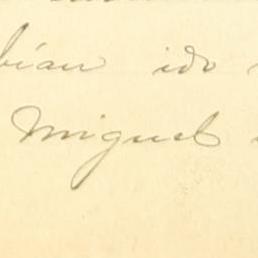 bían ido
Miguel